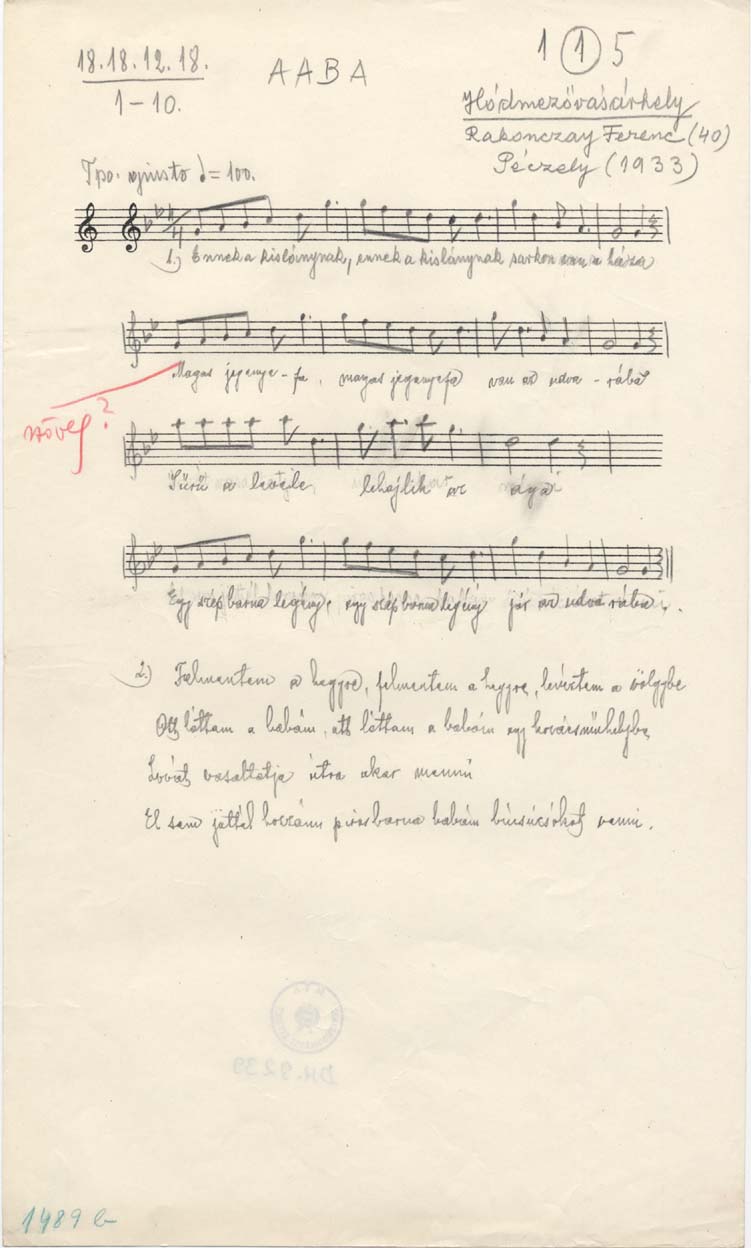 18.18.12.18.
1-10.
AABA
1 1 5
Hódmezővásárhely
Rakonczay Ferenc (40)
Péczely (1933)
Tpo. giusto = 100.
4
1.) Ennek a kislánynak, ennek a kislánynak sarkon van a háza
Magas jegenye-fa, magas jegenyefa van az udva-rába
szöveg?
Sűrű a levele, lehajlik az ága
Egy szép barna legény, egy szép barna legény jár az udvarába.
2.) Felmentem a hegyre, felmentem a hegyre, lenéztem a völgybe
Ott láttam a babám, ott láttam a babám egy kovácsműhelybe
Lovát vasaltatja útra akar menni
El sem jöttél hozzánk piros barna babám búcsúcsókot venni.
DH. 9239
1489 b